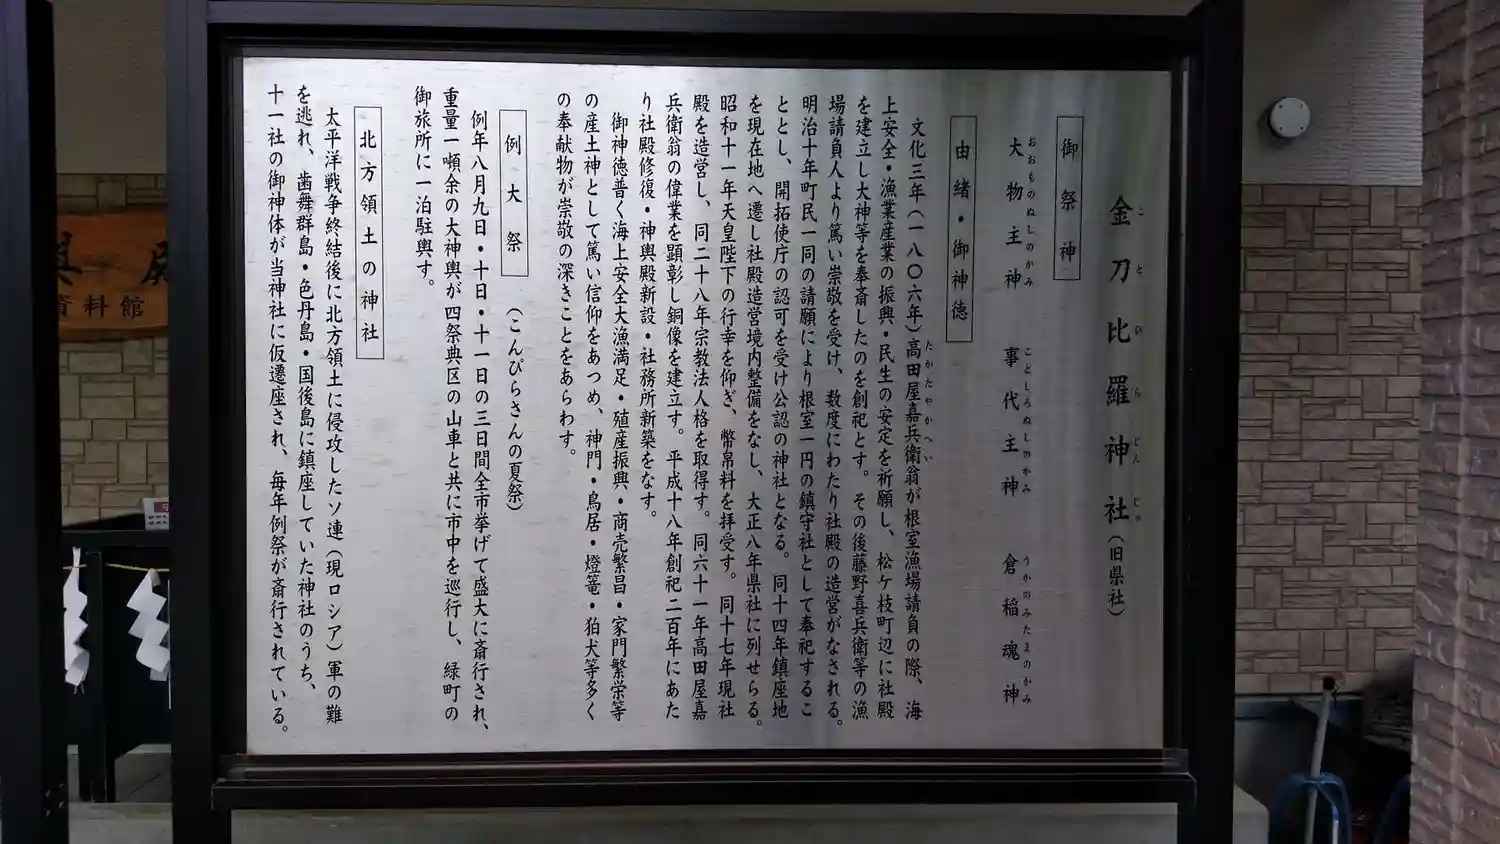 金刀比羅神社(旧県社)
ことひらじんじゃ
御祭神
大物主神 事代主神 倉稲魂神
おおものぬしのかみ ことしろぬしのかみ うかのみたまのかみ
由緒・御神徳
文化三年(一八〇六年)高田屋嘉兵衛翁が根室漁場請負の際、海
たかたやかへい
上安全・漁業産業の振興・民生の安定を祈願し、松ケ枝町辺に社殿
を建立し大神等を奉斎したのを創祀とす。その後藤野喜兵衛等の漁
場請負人より篤い崇敬を受け、数度にわたり社殿の造営がなされる。
明治十年町民一同の請願により根室一円の鎮守社として奉祀するこ
ととし、開拓使庁の認可を受け公認の神社となる。同十四年鎮座地
を現在地へ遷し社殿造営境内整備をなし、大正八年県社に列せらる。
昭和十一年天皇陛下の行幸を仰ぎ、幣帛料を拝受す。同十七年現社
殿を造営し、同二十八年宗教法人格を取得す。同六十一年高田屋嘉
兵衛翁の偉業を顕彰し銅像を建立す。平成十八年創祀二百年にあた
り社殿修復・神輿殿新設・社務所新築をなす。
御神徳普く海上安全大漁満足・殖産振興・商売繁昌・家門繁栄等
の産土神として篤い信仰をあつめ、神門・鳥居・燈篭・狛犬等多く
の奉献物が崇敬の深きことをあらわす。
例大祭 (こんぴらさんの夏祭)
例年八月九日・十日・十一日の三日間全市挙げて盛大に斎行され、
重量一頓余の大神輿が四祭典区の山車と共に市中を巡行し、緑町の
御旅所に一泊駐輿す。
北方領土の神社
太平洋戦争終結後に北方領土に侵攻したソ連(現ロシア)軍の難
を逃れ、歯舞群島・色丹島・国後島に鎮座していた神社のうち、
十一社の御神体が当神社に仮遷座され、毎年例祭が斎行されている。
資料館